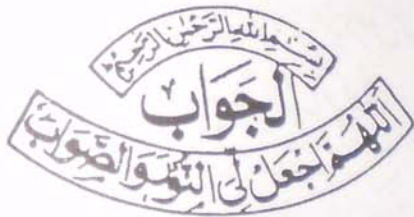 بِسْمِ اللهِ الرَّحْمٰنِ الرَّحِيْمِ
الجَوَابُ
اَللّٰهُمَّ اجْعَلْ لِّىْ النُّوْرَ وَالصَّوَابَ